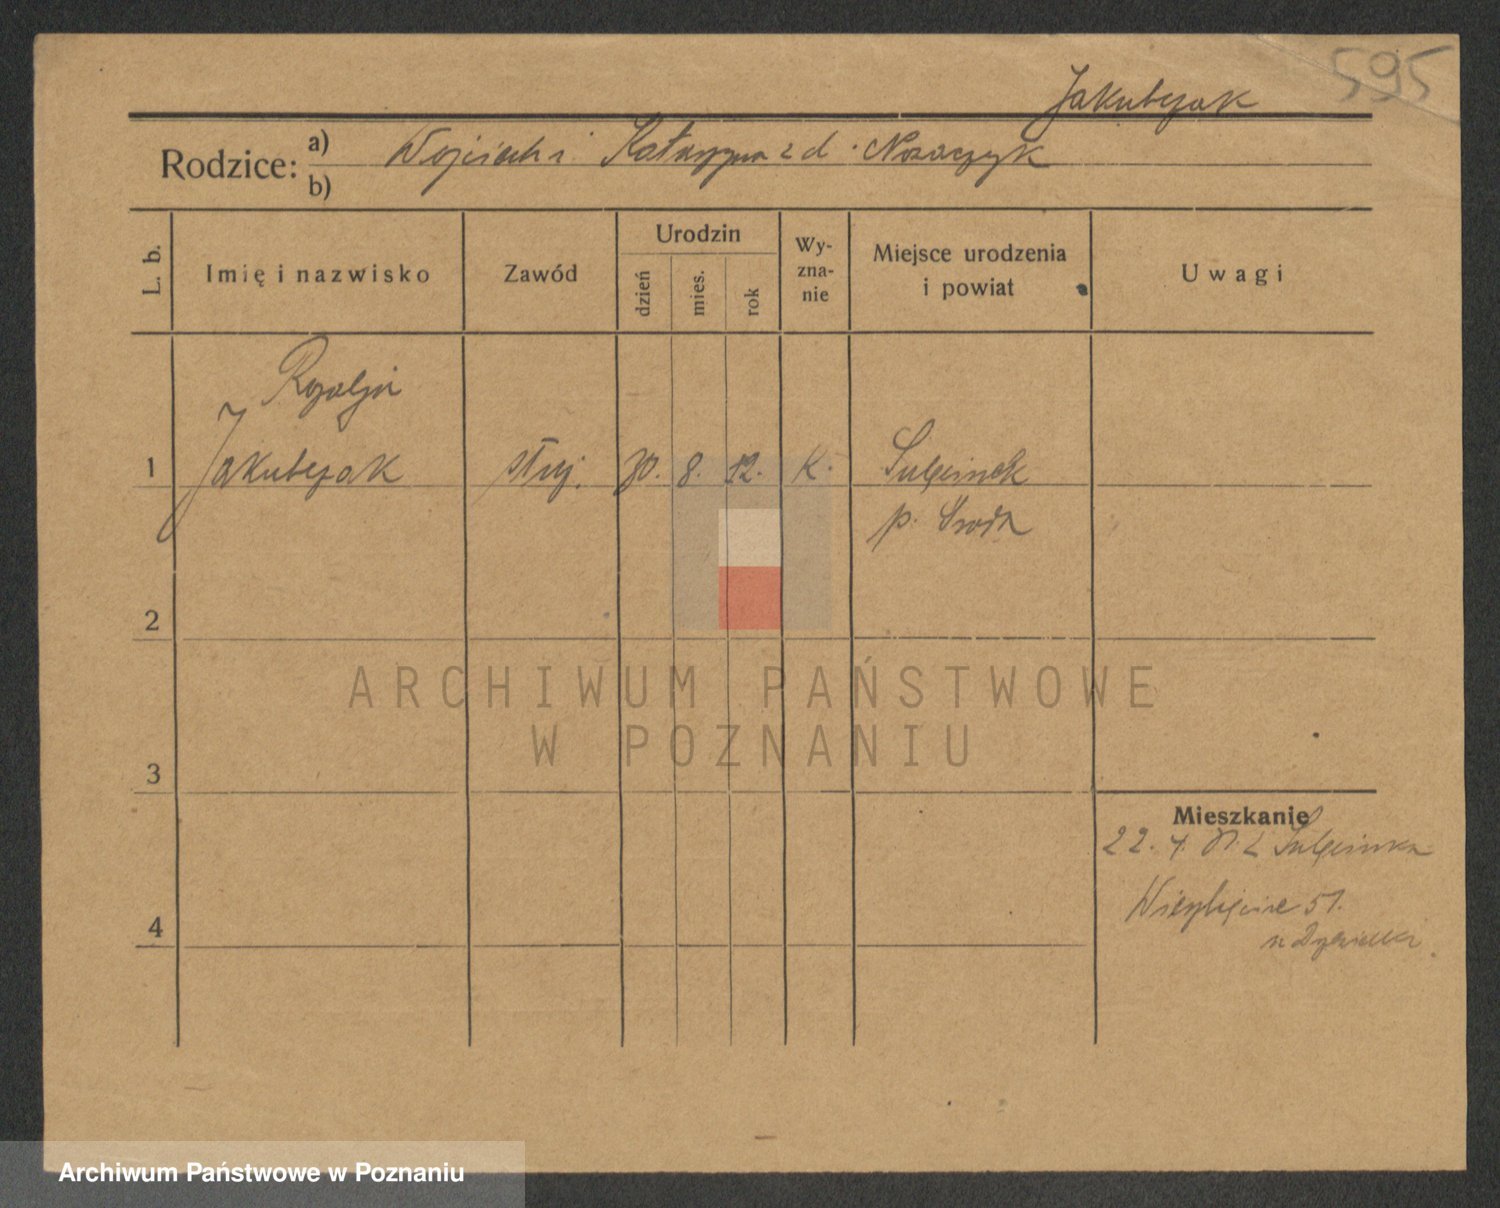 595
Jakubczak
Rodzice: a) Wojciech i Katarzyna z d.
b)
L. b.
Imię i nazwisko
Zawód
Urodzin
dzień
mies.
rok
Wy-
zna-
nie
Miejsce urodzenia
i powiat
Uwagi
Rozalja
1 Jakubczak służ. 30. 8. 12. K. Sulęcinek
p. Środa
2
ARCHIWUM PAŃSTWOWE
W POZNANIU
3
Mieszkanie
22. z Sulęcinka
4 51.
Archiwum Państwowe w Poznaniu